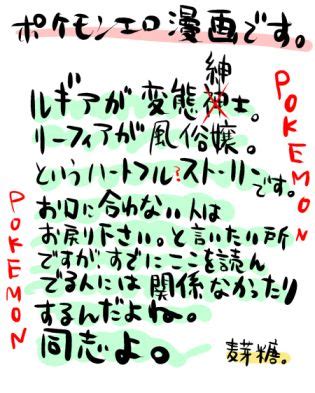 ポケモンエロ漫画です。
紳
ルギアが変態神士。
リーフィアが風俗嬢。
というハートフル?ストーリーです。
お口に合わない人は
お戻り下さい。と言いたい所
ですが、すでにここを読ん
でる人には関係なかったり
するんだよね。
同志よ。
麦芽糖。
POKEMON
POKEMON